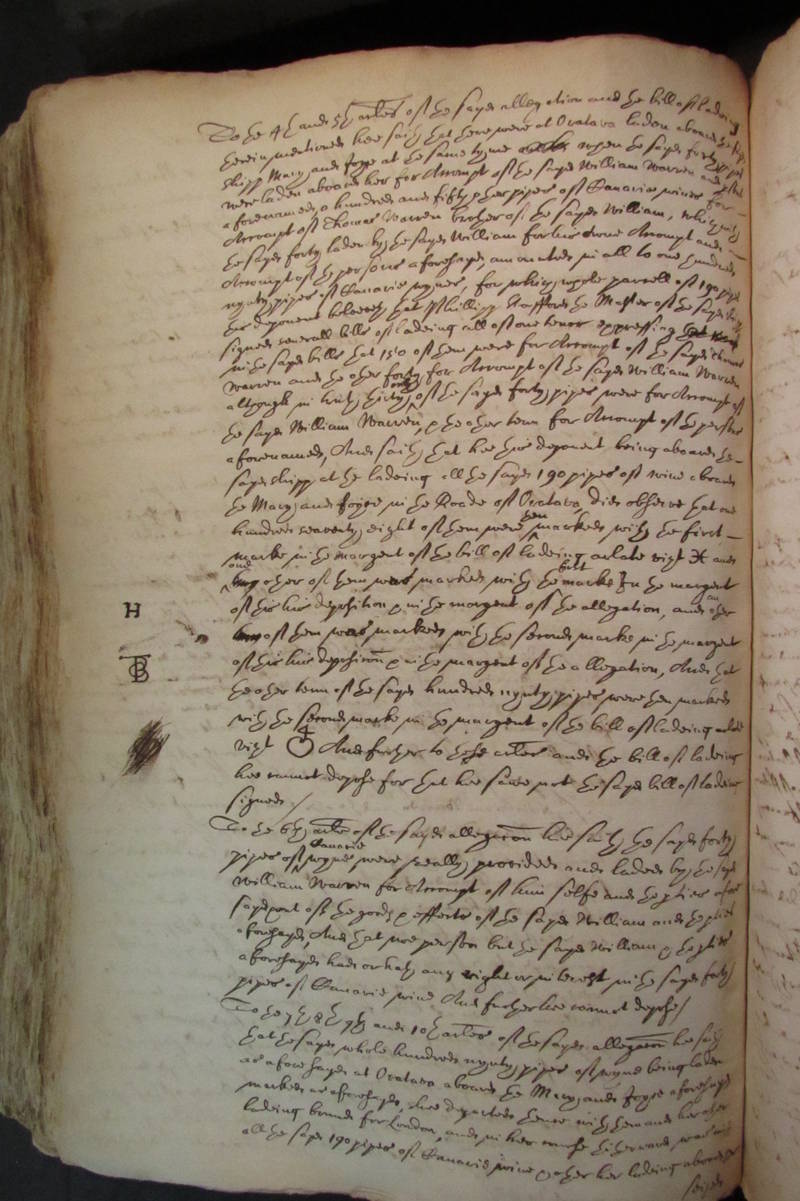 To the 4th and 5th arles of the sayd allegation and the bill of lading
therein mentioned hee saith that there were at Oratava laden aboard the
shipp Mary and Joyce at the same tyme when the sayd forty pipes
were laden aboard her for Accompt of the sayd William Warren and
aforenamed, a hundred and fifty other pipes of Canarie wines for
Accompt of Thomas Warren brother of the sayd William, which with
the sayd forty laden by the sayd William for his owne Accompt and
Accompt of the persons aforesayd, amounted in all to one hundred
nynty pipes of Canarie wynes, for which whole parcell of 190 pipes
this deponent beleeveth that Phillipp Stafford the Master of the sayd shipp
signed severall bills of ladeing all of one tenor expressing
in the sayd bills that 150 of them were for Accompt of the sayd Thomas
Warren and the other forty for Accompt of the sayd William Warren
although in truth thirty only of the sayd forty pipes were for Accompt of
the sayd William Warren, & the other tenn for Accompt of the persons
aforenamed, And saith that hee this deponent being aboard the
sayd shipp at the ladeing all the sayd 190 pipes of wine aboard
the Mary and Joyce in the Roade of Oratava, did observe that one
hundred seaventy eight of them were then marked with the first
marke in the margent of the bill of ladeing arlate vizt and
one other of them was marked with the first marke in the margent
of this his deposition & in the margent of the allegation, and an other
of them was marked with the second marke in the margent
of this his deposition & in the margent of the allegation, And that
the other tenn of the sayd hundred nynty pipes were then marked
with the second marke in the margent of the bill of ladeing arlate
vizt And further to these arles and the bill of ladeing
hee cannot depose for that hee sawe not the sayd bill of ladeing
signed /
H
TB
To the 6th arle of the sayd allegation hee saith the sayd forty
pipes of Canarie wynes were really provided and laded by the sayd
William Warren for Accompt of him selfe and the pties afore
sayd out of the goods & effects of the sayd William and the pties
aforesayd, And that noe person but the sayd William & the pties
aforesayd had or hath any right or interest in the sayd forty
pipes of Canarie wine And further hee cannot depose /
To the 7th 8th 9th and 10th arles of the sayd allegation hee saith
that the sayd whole hundred nynty pipes of wyne being laden
as aforesayd at Oratava aboard the Mary and Joyce aforesayd
marked as aforesayd, shee departed thence with them and her other
ladeing bound for London, and in her course hitherward was with
all the sayd 190 pipes of Canarie wine & other her ladeing aboard her
seized